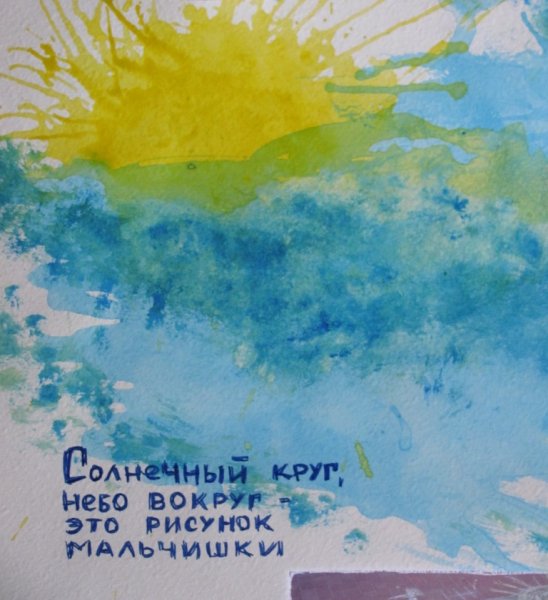 Солнечный круг,
небо вокруг -
это рисунок
мальчишки